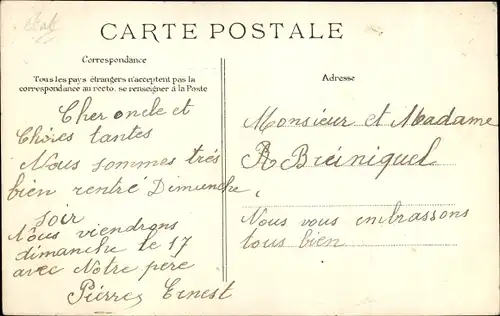 CARTE POSTALE
Correspondance
Tous les pays étrangers n'acceptent pas la
correspondance au recto, se renseigner à la Poste
Cher oncle et
Chères tantes
Nous sommes trés
bien rentré Dimanche
soir
Nous viendrons
dimanche le 17
avec Notre père
Pierre Ernest
Adresse
Monsieur et Madame
R Breiniquel
Nous vous embrassons
tous bien